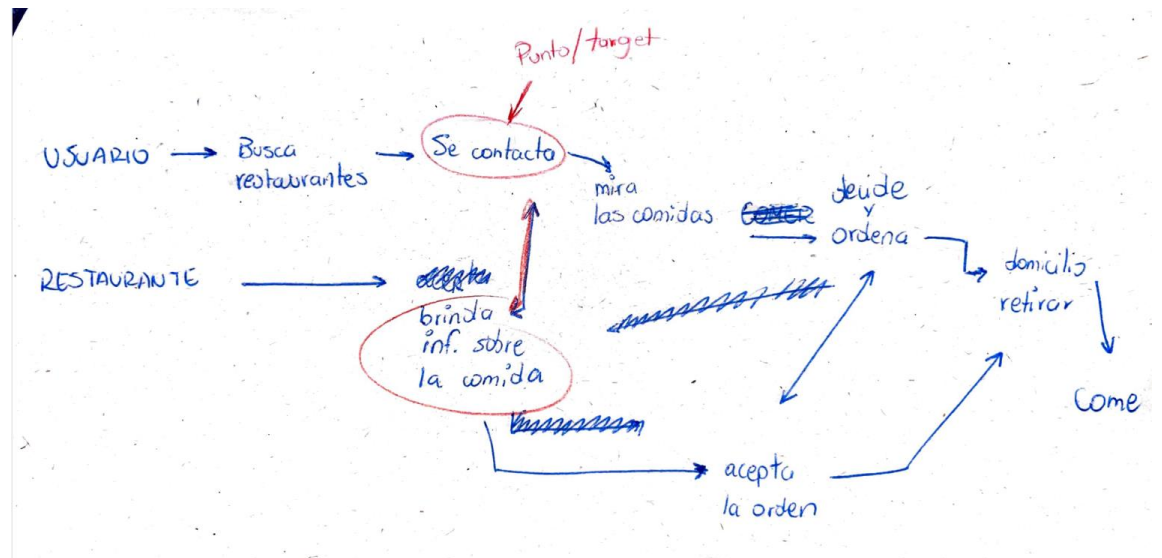 Punto/target
USUARIO
Busca
restaurantes
Se contacta
mira
las comidas
decide
y
ordena
domicilio
retirar
Come
RESTAURANTE
brinda
inf. sobre
la comida
acepta
la orden